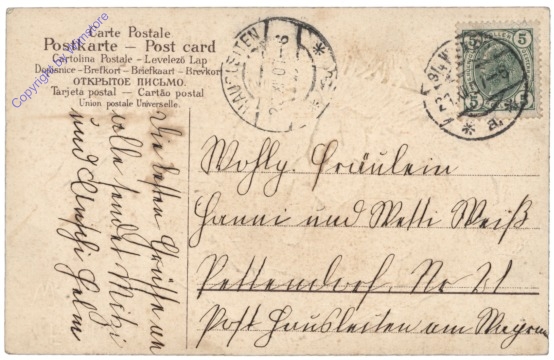 Carte Postale
Postkarte — Post card
Cartolina Postale - Levelező Lap
Dopisnice - Brefkort - Briefkaart - Brevkort
ОТКРЫТОЕ ПИСЬМО.
Tarjeta postal — Cartão postal
Union postale Universelle.
Copyright by wmstore
HAUSLEITEN
5
5
5
Die besten Grüsse an
alle sendet Mitzi
und
Wohlg. Fräulein
Hanni und Metti Weiß
Pettendorf, Nr 21
Post Hausleiten am Wagram